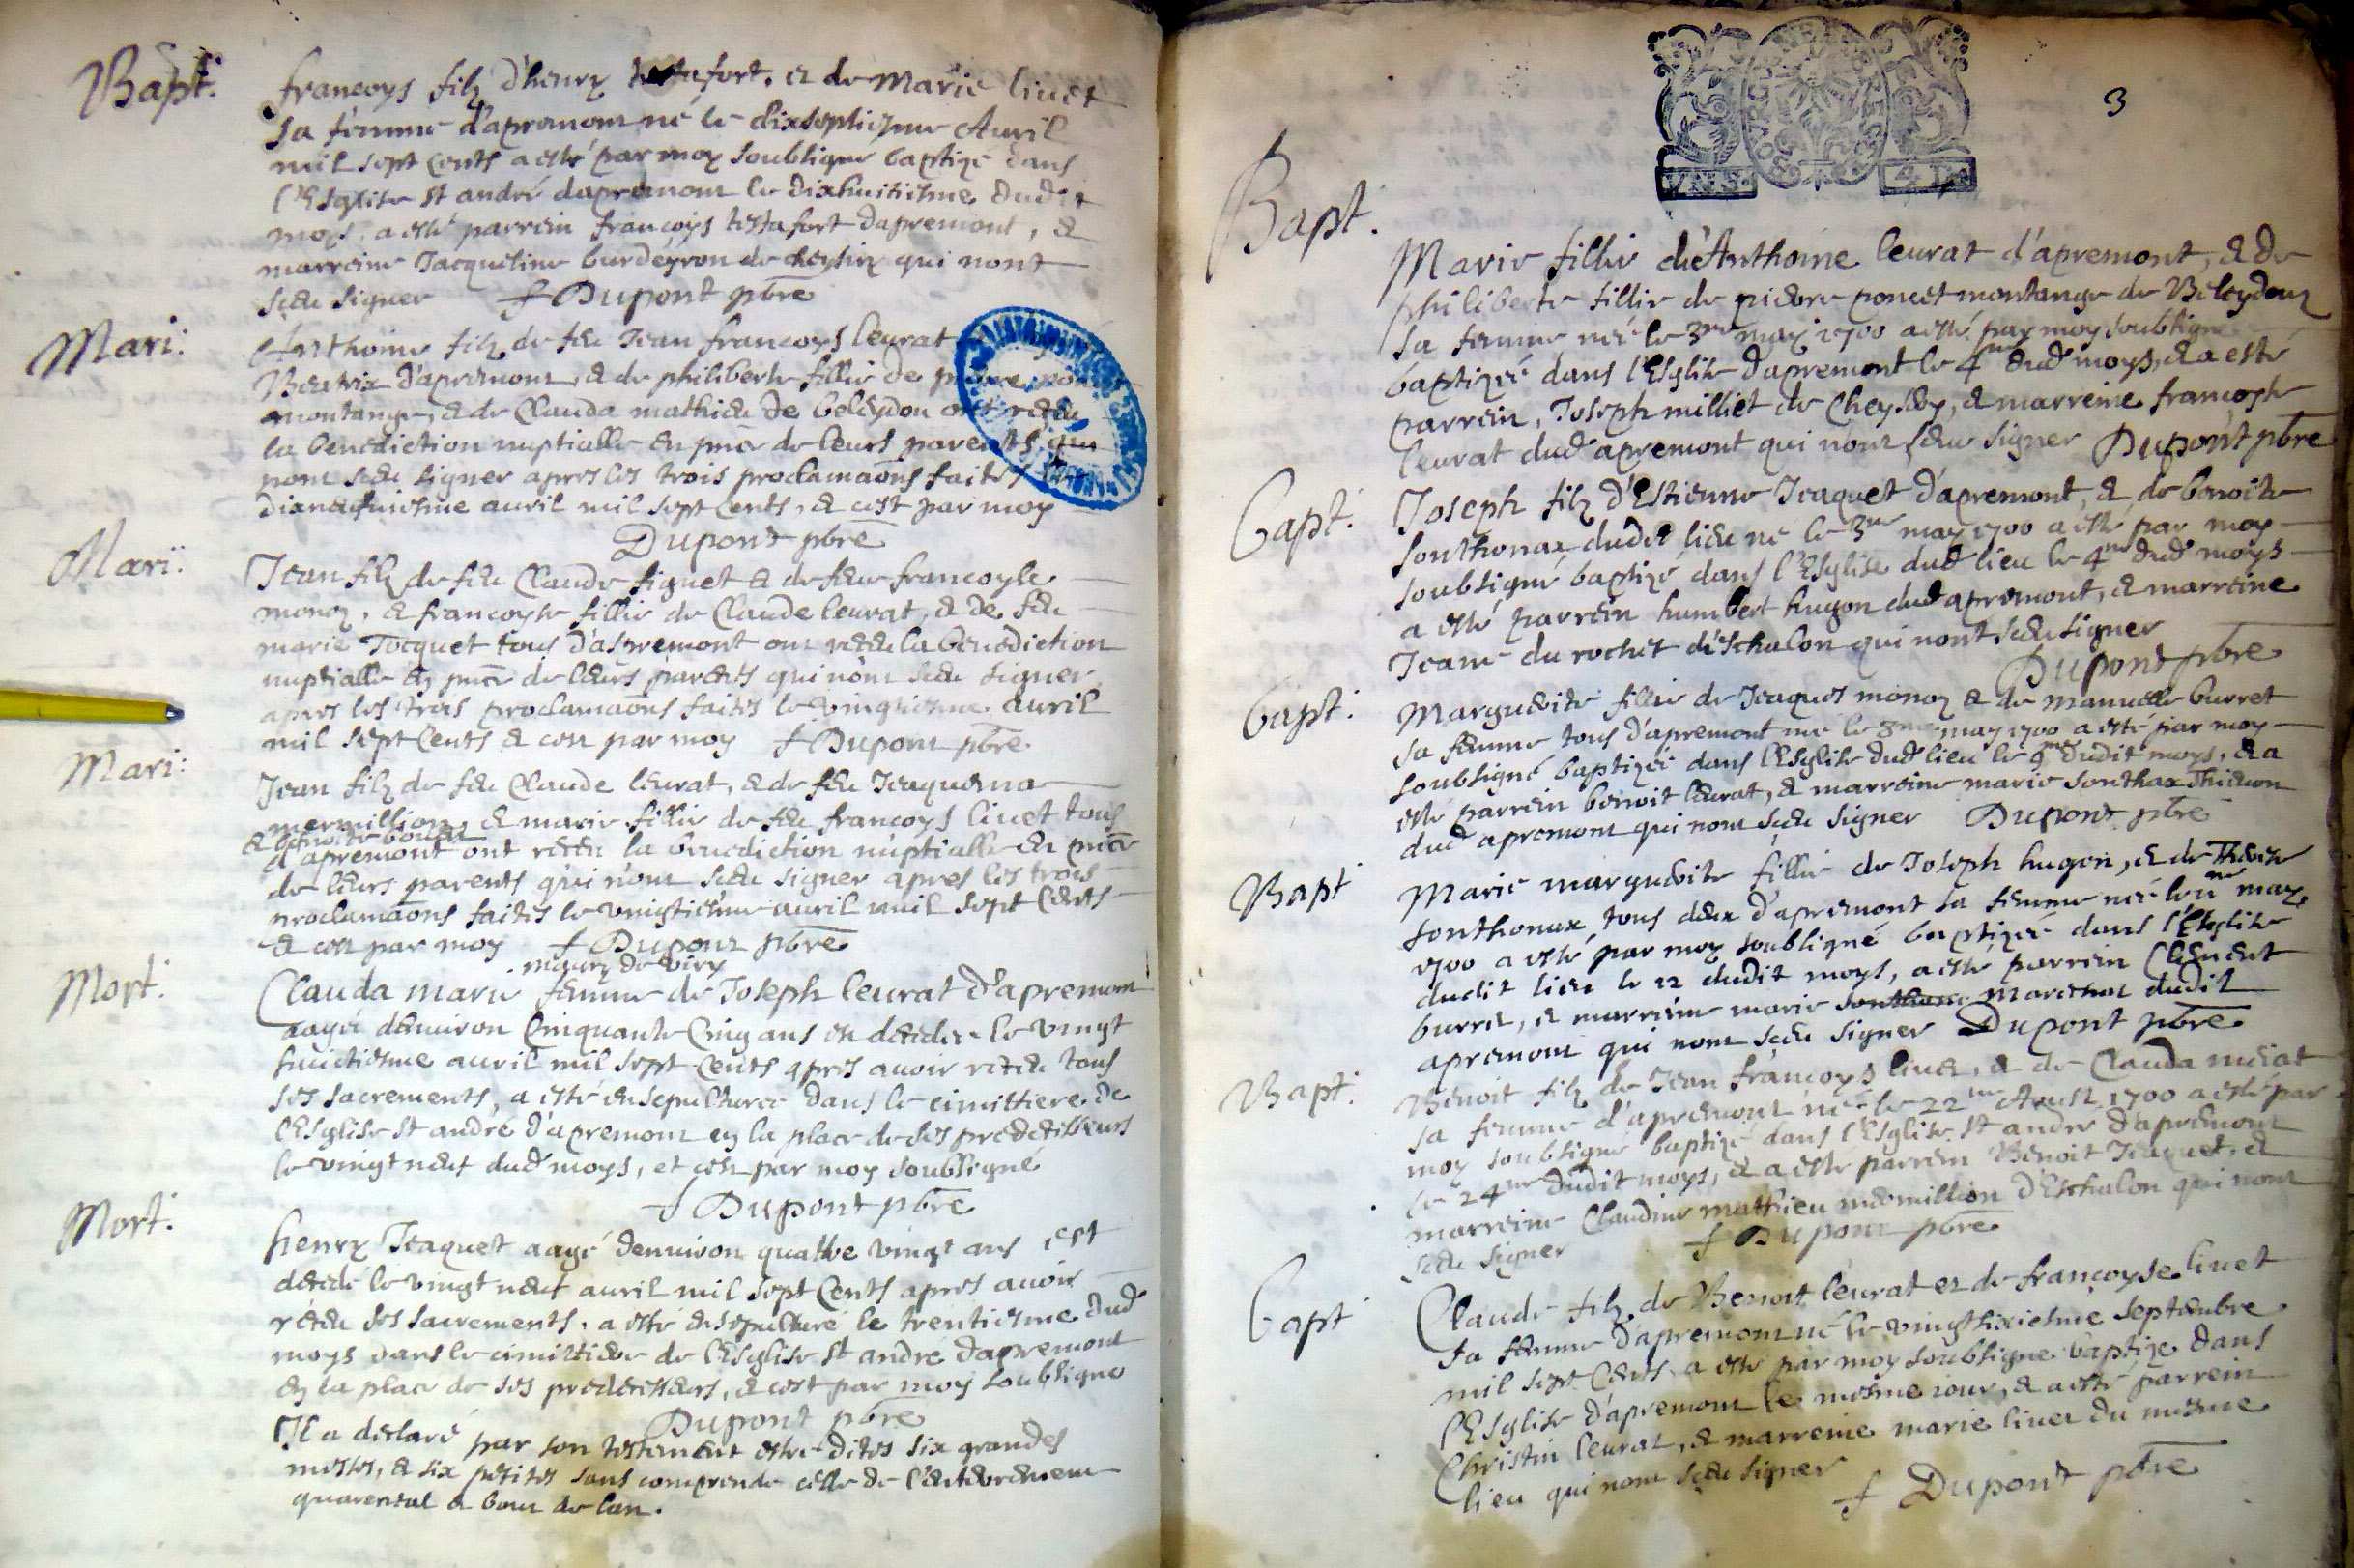 Bapt.
francoys filz d'henry testafort, et de Marie liuet
sa femme d'apremont né le dixseptiesme Auril
mil sept cents a esté par moy soubsigne baptizé dans
l'Esglise st andré dapremont le dixhuitiesme dudit
moys, a esté parrein françois testafort dapremont, &
marreine Jacqueline burdeyron de cheysiry qui nont
sceu signer Dupont pbre
Mari:
Anthoine filz de feu Jean francoys leurat
Beatrix d'apremont, & de philiberte fillie de
montange, & de Clauda mathieu de beleydou ont receu
la benediction nuptialle en pnce de leurs parents qui
nont sceu signer apres les trois proclamaons faites
dixneufuiesme auril mil sept cents, & cest par moy
Dupont pbre
Mari:
Jean filz de feu Claude figuet & de feue francoyse
monoz, & francoyse fillie de Claude leurat, & de feu
marie Jocquet tous d'aspremont ont receu la benediction
nuptialle en pnce de leurs parents qui nont sceu signer
apres les trois proclamaons faites le vingtiesme auril
mil sept Cents & cest par moy Dupont pbre
Mari:
Jean filz de feu Claude leurat, & de feu Jeaquema
mermillion, & marie fillie de feu francoys liuet tous
& benoite
d'apremont ont receu la benediction nuptialle en pnce
de leurs parents qui nont sceu signer apres les trois
proclamaons faites le vingtiesme auril mil sept Cents
& cest par moy Dupont pbre
moury de viry
Mort.
Clauda marie femme de Joseph leurat d'apremont
aagée denuiron Cinquante Cinq ans est decedée le vingt
huictiesme auril mil sept Cents apres auoir receu tous
ses sacrements, a esté ensepulturee dans le cimittiere de
l'Esglise st andré d'apremont en la place de ses predecesseurs
le vingt neuf dud moys, et cest par moy soubsigné
Dupont pbre
Mort.
henry Jeaquet aagé denuiron quattre vingt ans est
decedé le vingt neuf auril mil sept Cents apres auoir
receu ses sacrements, a esté ensepulturé le trentiesme dud
moys dans le cimittiere de l'Esglise st andré dapremont
en la place de ses predecesseurs, & cest par moy soubsigné
Dupont pbre
Il a declaré par son testament estre dites six grandes
messes, & six petites sans comprendre celle de l'enterrement
quarental & bout de l'an.
3
Bapt.
Marie fillie d'Anthoine leurat d'apremont, & de
philiberte fillie de pierre poncet montange de Beleydoux
sa femme née le 3me may 1700 a esté par moy soubsigne
baptizée dans l'Esglise d'apremont le 4me dud moys, & a esté
parrein, Joseph milliet de Cheysery, & marreine francoyse
leurat dud apremont qui nont sceu signer Dupont pbre
bapt.
Joseph filz d'Estienne Jeaquet d'apremont, & de benoite
sonthonax dudit lieu né le 3me may 1700 a esté par moy
soubsigné baptizé dans l'Esglise dud lieu le 4me dud moys
a esté parrein humbert hugon dud apremont, & marreine
Jeane du rochet d'Eschalon qui nont sceu signer
Dupont pbre
bapt.
Marguerite fillie de Jeaques monoz & de manuelle burret
sa femme tous d'apremont née le 3me may 1700 a esté par moy
soubsigné baptizée dans l'Esglise dud lieu le 9me dudit moys, & a
esté parrein benoit leurat, & marreine marie
dud apremont qui nont sceu signer Dupont pbre
Bapt
Marie marguerite fillie de Joseph hugon, & de
sonthonax tous deux d'apremont sa femme née le 11me may
1700 a esté par moy soubsigné baptizée dans l'Esglise
dudit lieu le 12 dudit moys, a esté parrein Clement
burret, & marreine marie marechal dudit
apremont qui nont sceu signer Dupont pbre
Bapt.
Benoit filz de Jean françoys liuet, & de Clauda
sa femme d'apremont né le 22me Aoust 1700 a esté par
moy soubsigné baptizé dans l'Esglise st andré d'apremont
le 24me dudit moys, & a esté parrein Benoit Jeaquet, &
marreine Claudine mathieu mermillion d'Eschalon qui nont
sceu signer Dupont pbre
bapt
Claude filz de Benoit leurat et de françoyse liuet
sa femme d'apremont né le vingthixiesme septembre
mil sept Cents a esté par moy soubsigné baptizé dans
l'Esglise d'apremont le mesme iour, & a esté parrein
Christin leurat, & marreine marie liuet du mesme
lieu qui nont sceu signer Dupont pbre